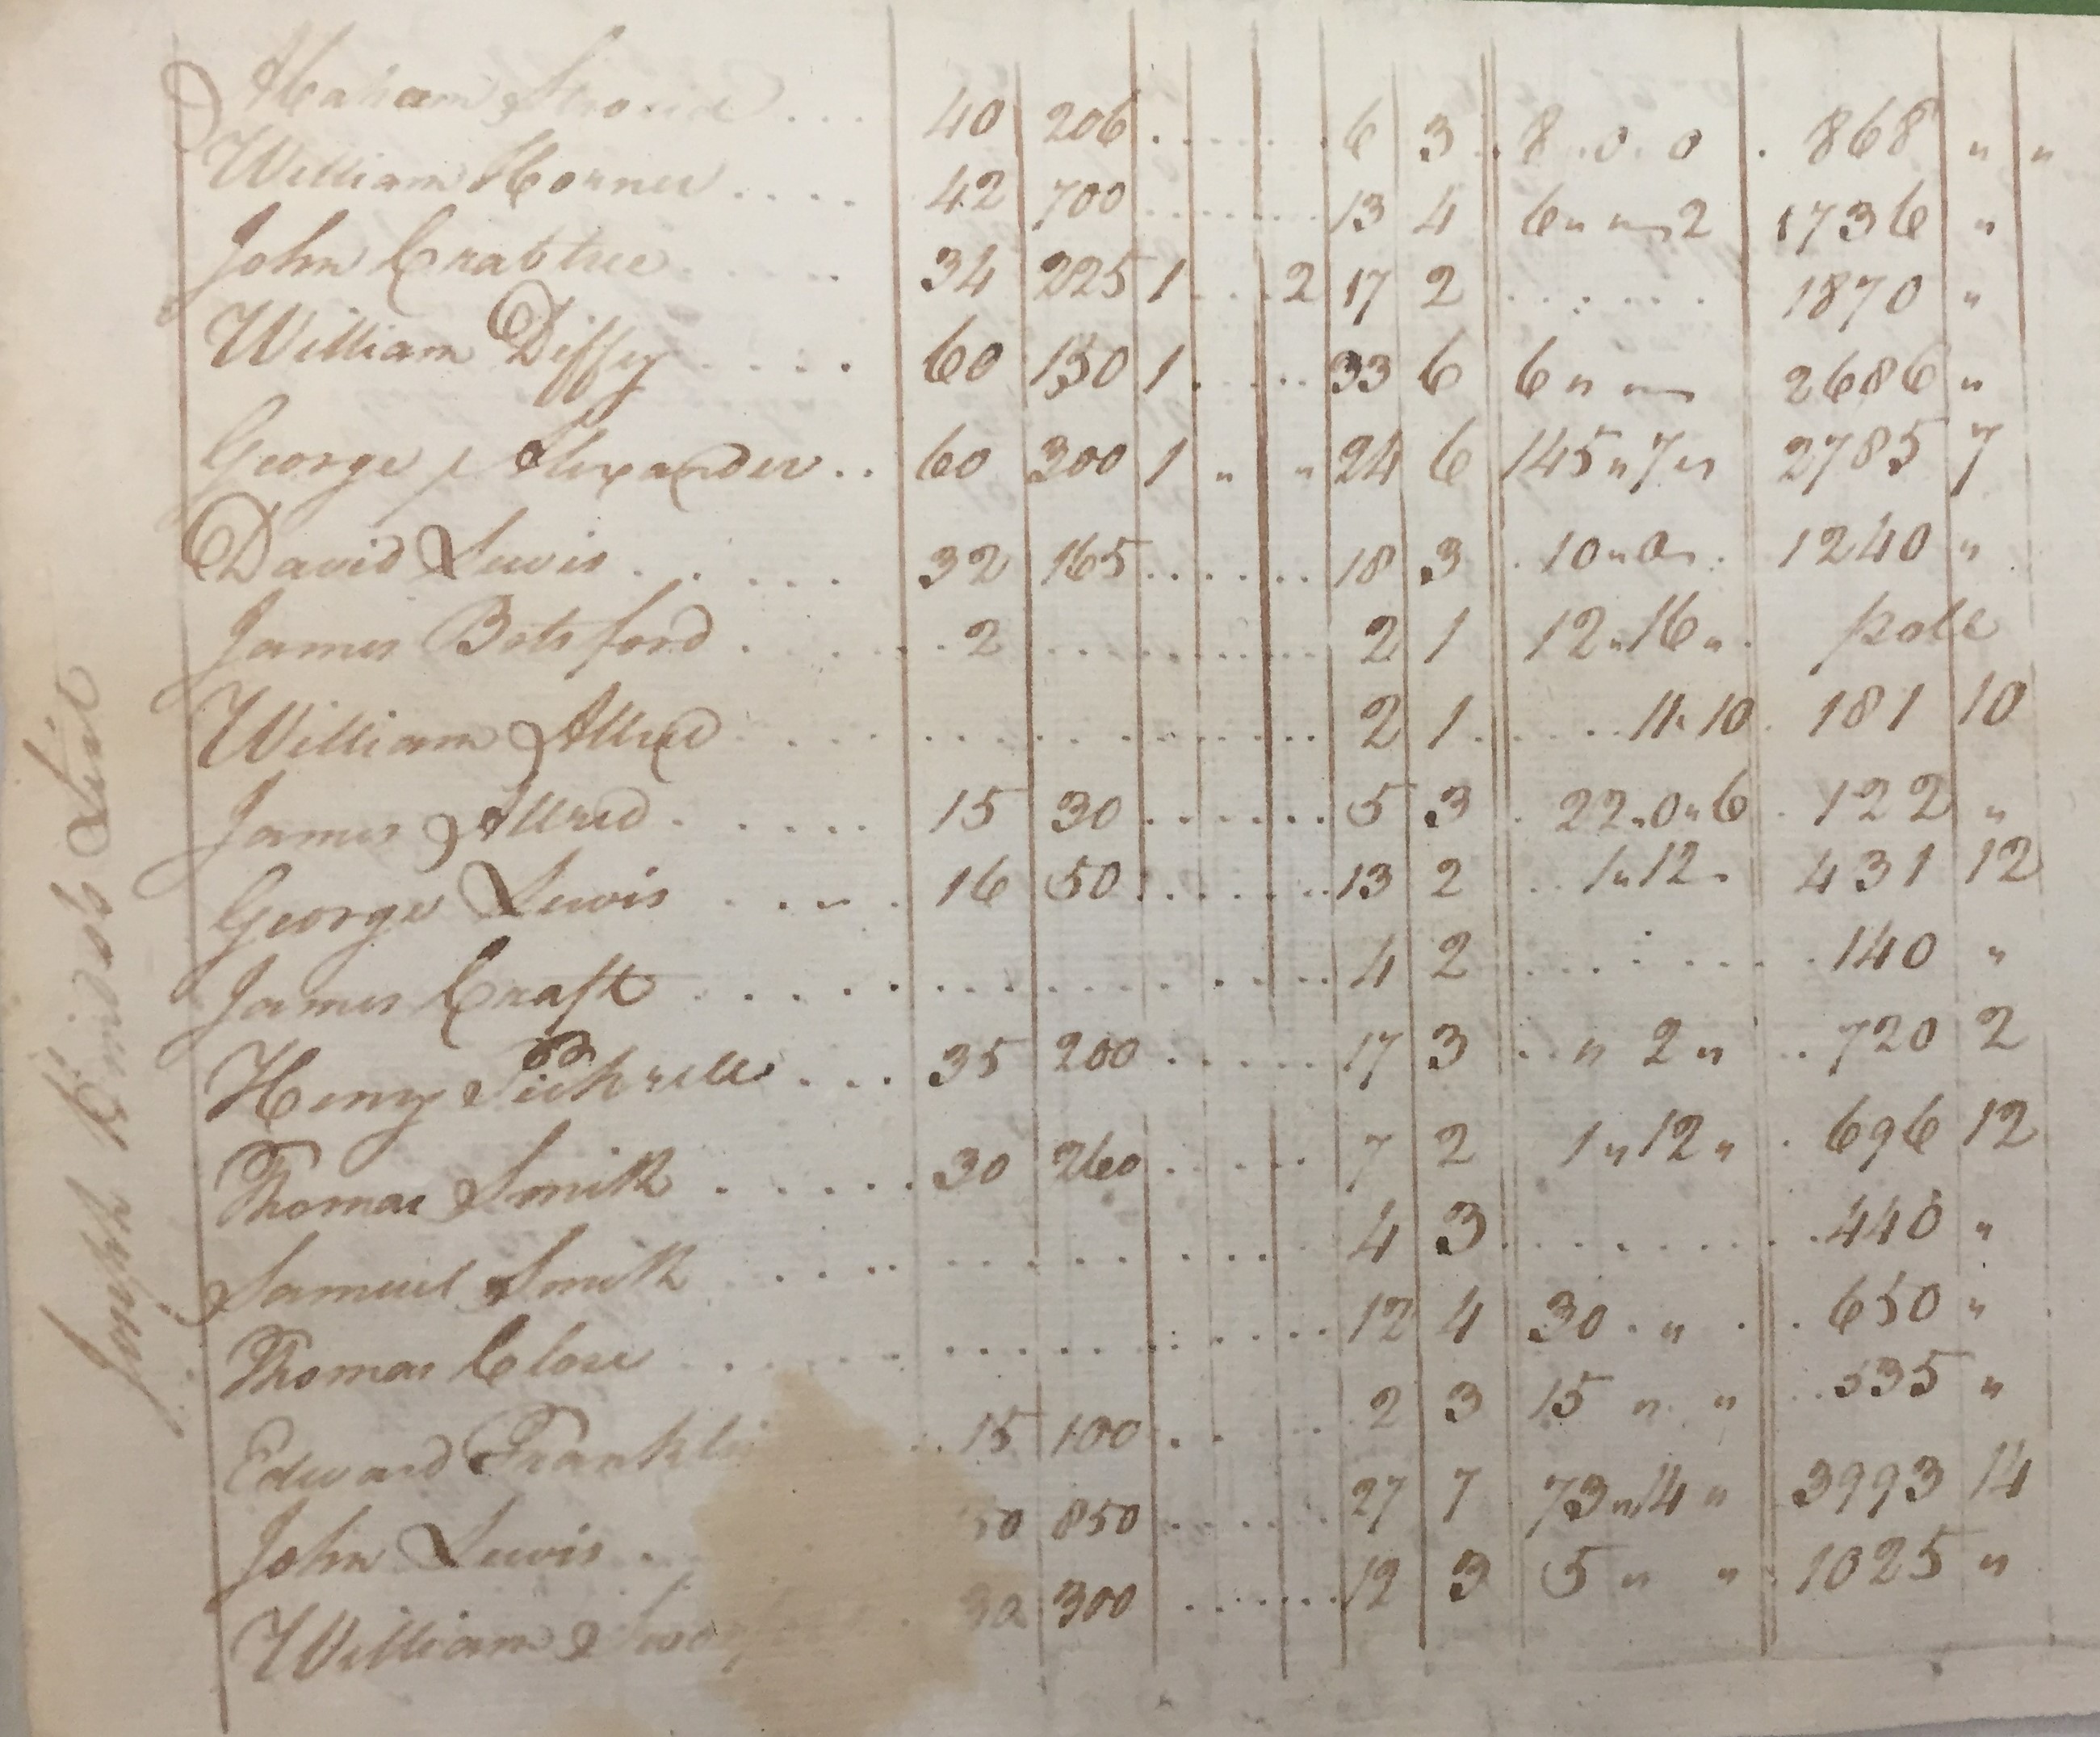 Abraham Strovid . . . 40 206 . . . . . . 6 3 . 8 . 0 . 0 . 868 " "
William Horner . . . . 42 700 . . . . . . 13 4 6 " " 2 1736 "
John Crabtree . . . . 34 225 1 . . . 2 17 2 . . . . . . 1870 "
William Diffey . . . . 60 150 1 . . . . . 33 6 6 " " 2686 "
George Alexander . . 60 300 1 " " 24 6 145 " 7 " 2785 7
David Lewis . . . . . 32 165 . . . . . . 18 3 . 10 " 0 " . 1240 "
James Botsford . . . . . 2 . . . . . . . . . 2 1 12 " 16 " . pole
William Allred . . . . . . . . . . . . . 2 1 . . . . . 11 " 10 . 181 10
James Allred . . . . . 15 30 . . . . . . 5 3 . 22 " 0 " 6 . 122 "
George Lewis . . . . . 16 50 . . . . . . 13 2 . . 1 " 12 " 431 12
James Craft . . . . . . . . . . . . . 4 2 . . . . . . . 140 "
Henry Pickrell . . . 35 200 . . . . . 17 3 . . " 2 " . . 720 2
Thomas Smith . . . . . 30 260 . . . . . 7 2 1 " 12 " . 696 12
Samuel Smith . . . . . . . . . . . . 4 3 . . . . . . . . 440 "
Thomas Close . . . . . . . . . . . . 12 4 30 . " . . 650 "
Edward Frankli . . 15 100 . . . 2 3 15 " " . . 535 "
John Lewis . . 50 850 . . . . . . 27 7 73 " 14 " 3993 14
William . 30 300 . . . . . . 12 3 5 " " . 1025 "
Joseph List